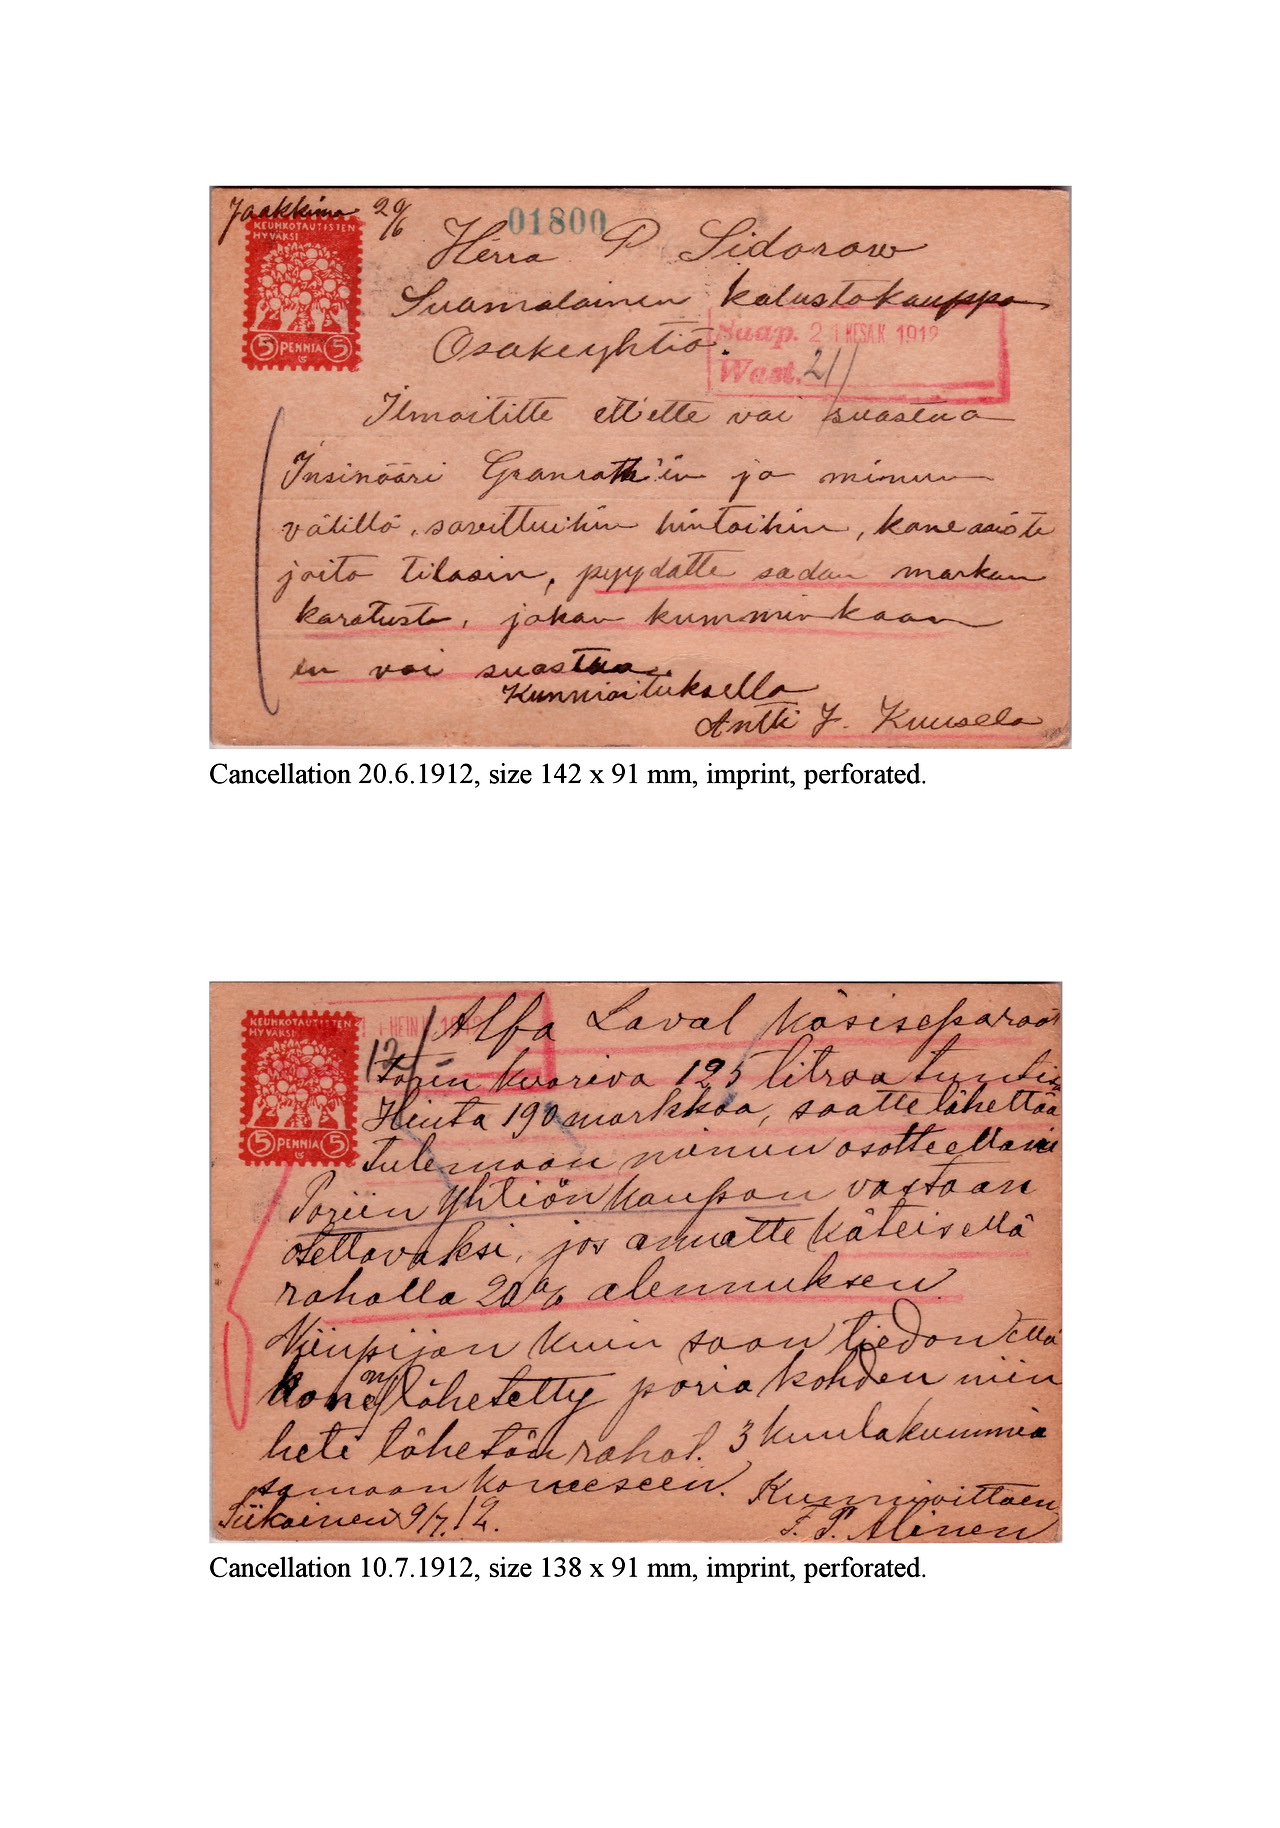 Jaakkima 20/6
01800
KEUHKOTAUTISTEN
HYVÄKSI
5 PENNIÄ 5
Herra P Sidorow
Suamalainen kalustokauppa
Osakeyhtiö.
Saap. 21 KESÄK 1912
Wast. 21/
Ilmoititte ett'ette voi suastua
Insinööri Granroth'in ja minun
välillä, sovittuihin hintoihin, koneesiote
joita tilasin, pyydätte sadan markan
karatusta, johon kumminkaan
en voi suastua
Kunnioituksella
Antti J. Kuusela
Cancellation 20.6.1912, size 142 x 91 mm, imprint, perforated.
KEUHKOTAUTISTEN
HYVÄKSI
5 PENNIÄ 5
HEINÄK 1912
12/
Alfa Laval käsiseparaat
torin kuoriva 125 litraa tuntissa
Hinta 190 markkaa, saatte lähettää
tulemaan minun osotteellani
Poriin Yhtiön kaupan vastaan
otettavaksi, jos annatte käteisellä
rahalla 20% alennuksen
Niinpijan kuin saan tiedon että
kone on lähetetty poria kohden niin
heti lähetän rahat. 3 kuulakummia
samaan koneeseen. Kunnioittaen
Siikainen 9/7.12. F. P. Alinen
Cancellation 10.7.1912, size 138 x 91 mm, imprint, perforated.